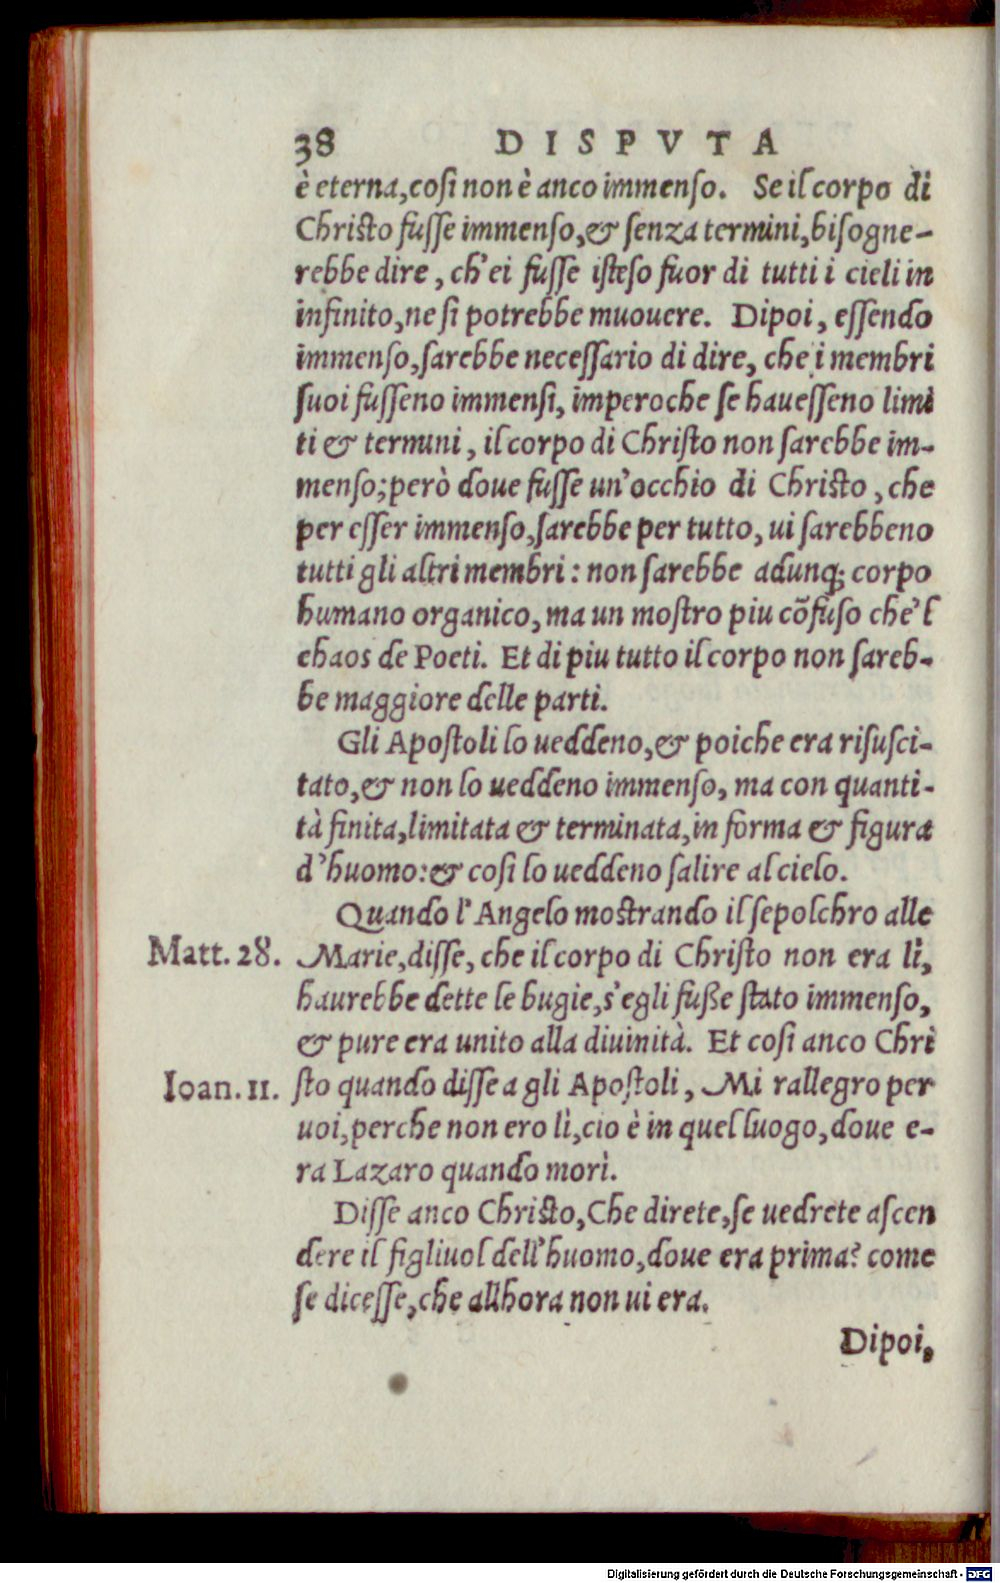 38 DISPVTA
è eterna, cosi non è anco immenso. Se il corpo di
Christo fusse immenso, & senza termini, bisogne-
rebbe dire, ch'ei fusse isteso fuor di tutti i cieli in
infinito, ne si potrebbe muouere. Dipoi, essendo
immenso, sarebbe necessario di dire, che i membri
suoi fusseno immensi, imperoche se hauesseno limi
ti & termini, il corpo di Christo non sarebbe im-
menso; però doue fusse un'occhio di Christo, che
per esser immenso, sarebbe per tutto, ui sarebbeno
tutti gli altri membri: non sarebbe adunq; corpo
humano organico, ma un mostro piu cõfuso che'l
chaos de Poeti. Et di piu tutto il corpo non sareb-
be maggiore delle parti.
Gli Apostoli lo ueddeno, & poiche era risusci-
tato, & non lo ueddeno immenso, ma con quanti-
tà finita, limitata & terminata, in forma & figura
d'huomo: & cosi lo ueddeno salire al cielo.
Quando l'Angelo mostrando il sepolchro alle
Matt. 28. Marie, disse, che il corpo di Christo non era lì,
haurebbe dette le bugie, s'egli fuße stato immenso,
& pure era unito alla diuinità. Et cosi anco Chri
Ioan. 11. sto quando disse a gli Apostoli, Mi rallegro per
uoi, perche non ero lì, cio è in quel luogo, doue e-
ra Lazaro quando morì.
Disse anco Christo, Che direte, se uedrete ascen
dere il figliuol dell'huomo, doue era prima? come
se dicesse, che allhora non ui era.
Dipoi,
Digitalisierung gefördert durch die Deutsche Forschungsgemeinschaft - DFG